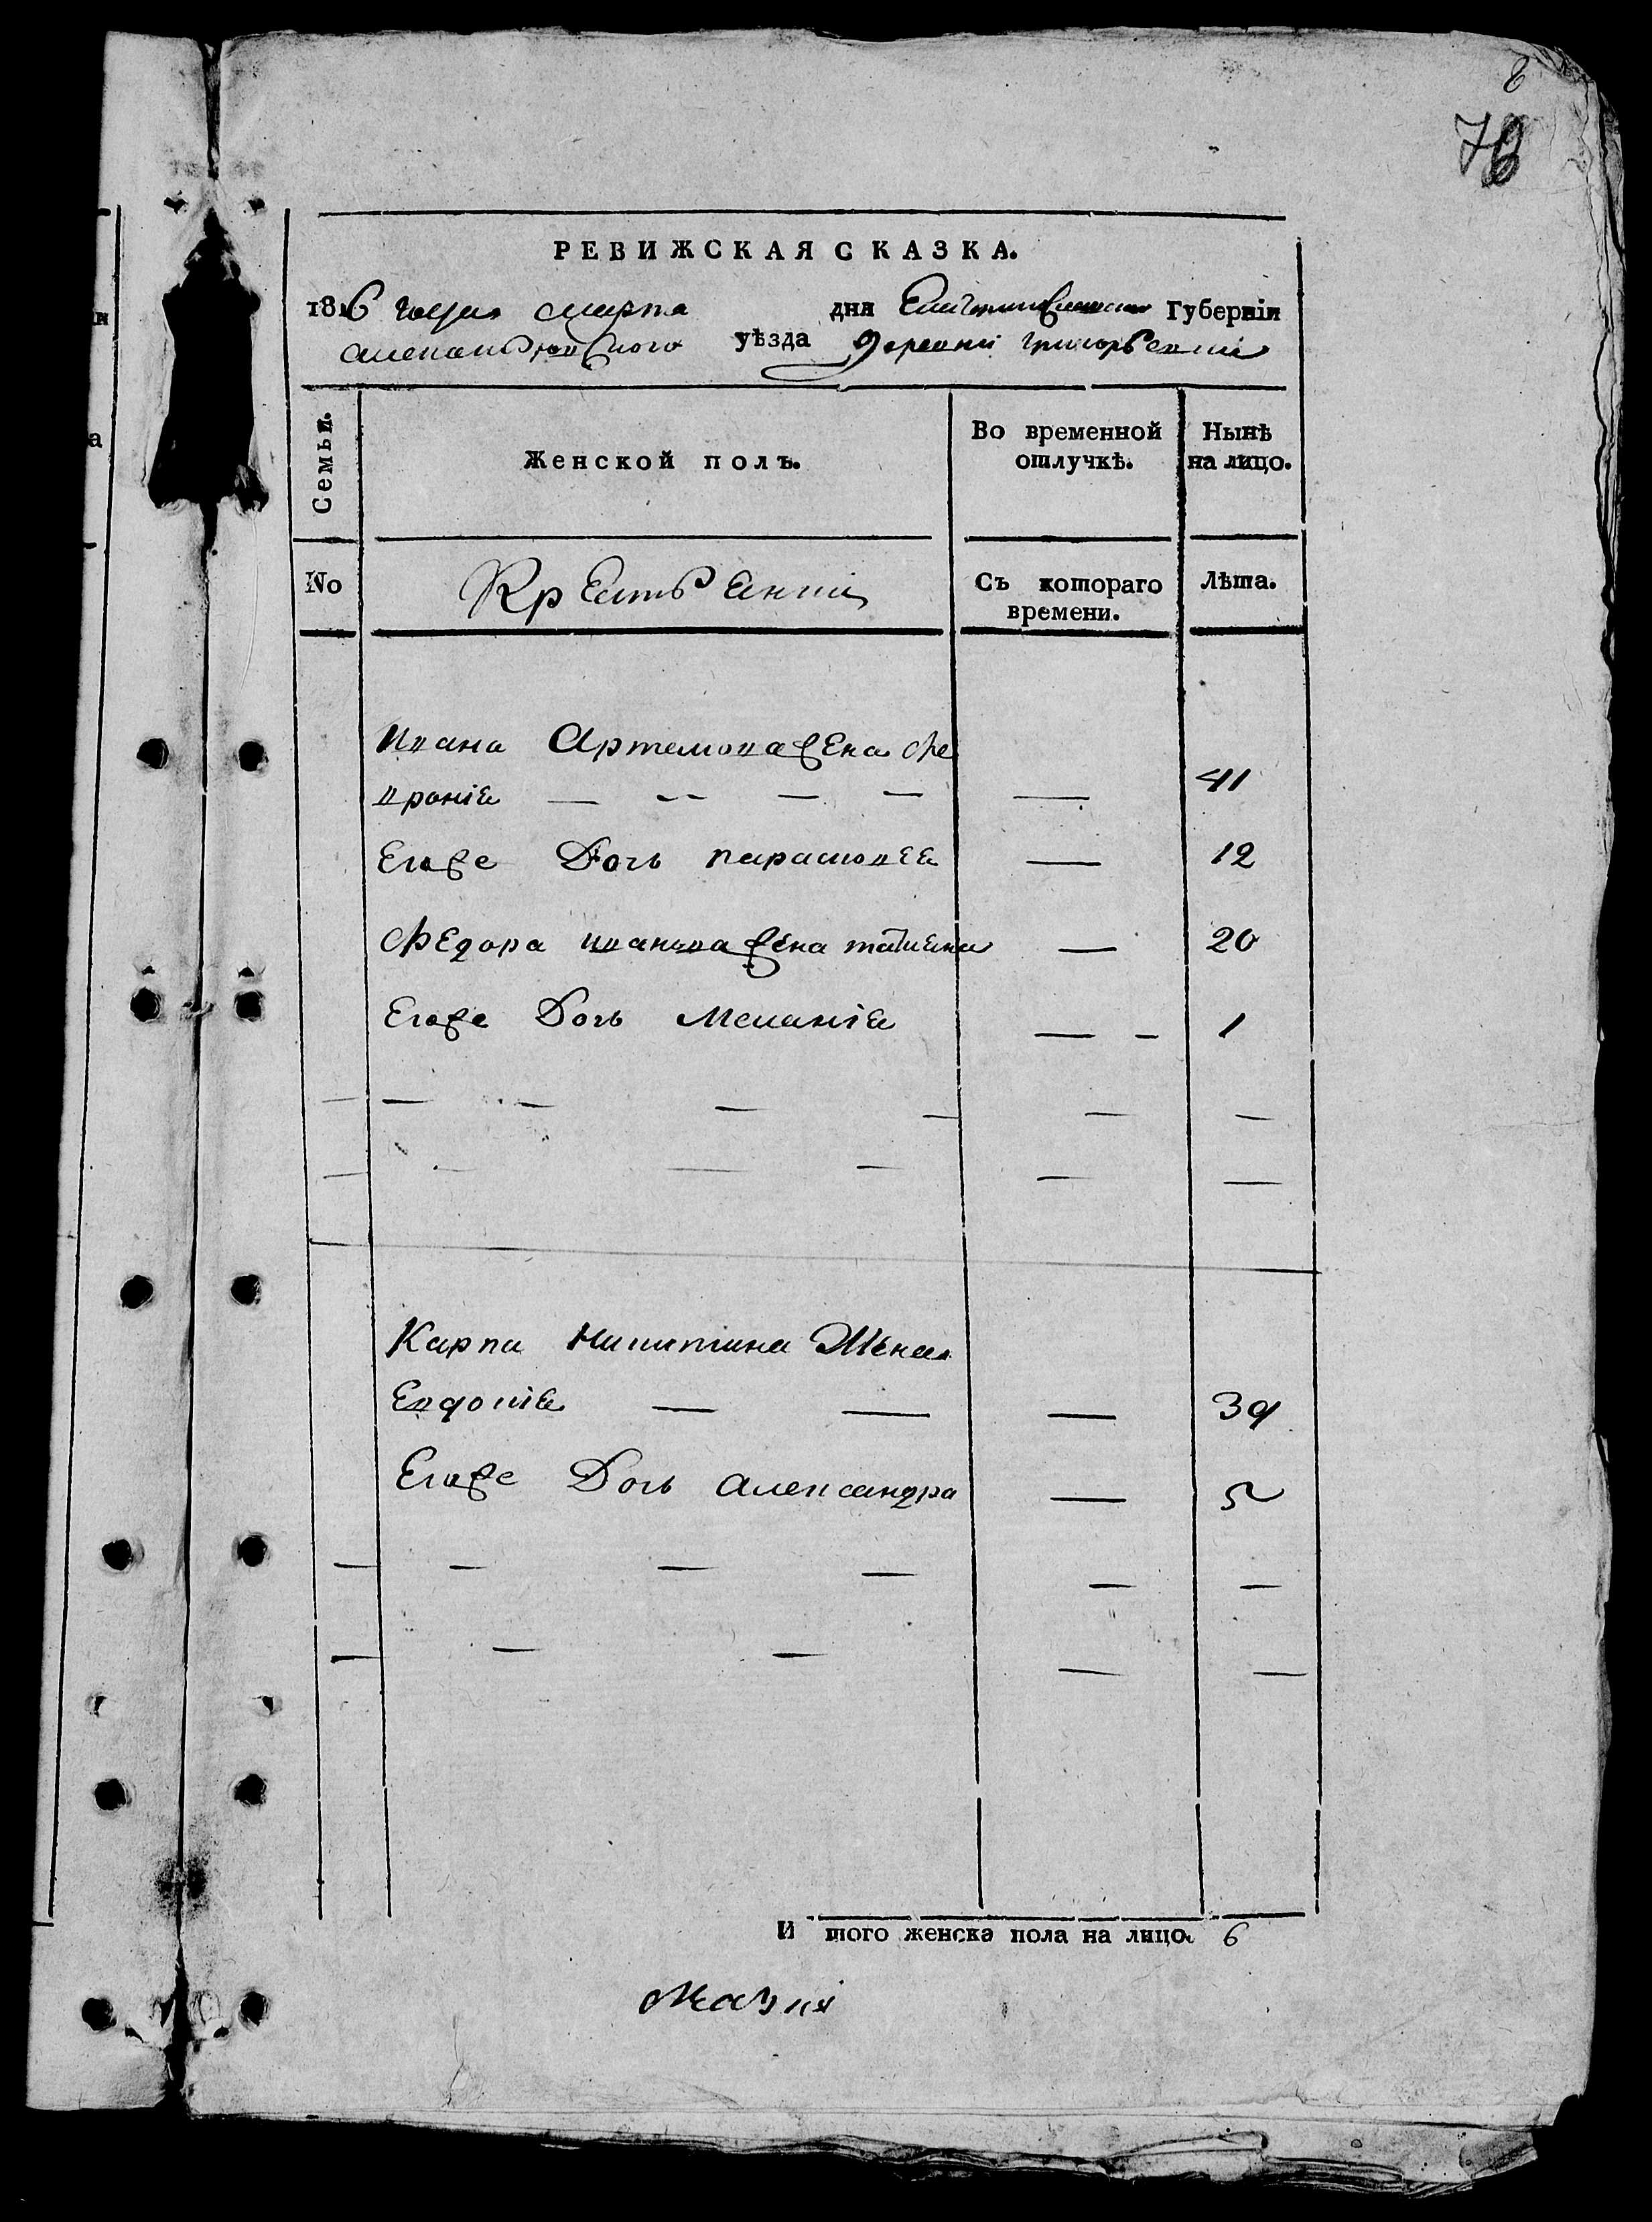 8
78
РЕВИЖСКАЯ СКАЗКА.
1816 года марта дня Екатеринославской Губерніи
александрійского уѣзда деревни григорьевки
Семьи.
Женской полъ.
Во временной отлучкѣ.
Нынѣ на лицо.
No
Крестьянки
Съ котораго времени.
Лѣта.
ивана Артемова жена фе
вроніа — — — — — 41
Егоже Дочь парасковеа — 12
Федора иванова жена татиана — 20
Егоже Дочь Меланіа — — 1
Карпа Никитина Жена
Евдокіа — — — 39
Егоже Дочь александра — 5
И того женска пола на лицо. 6